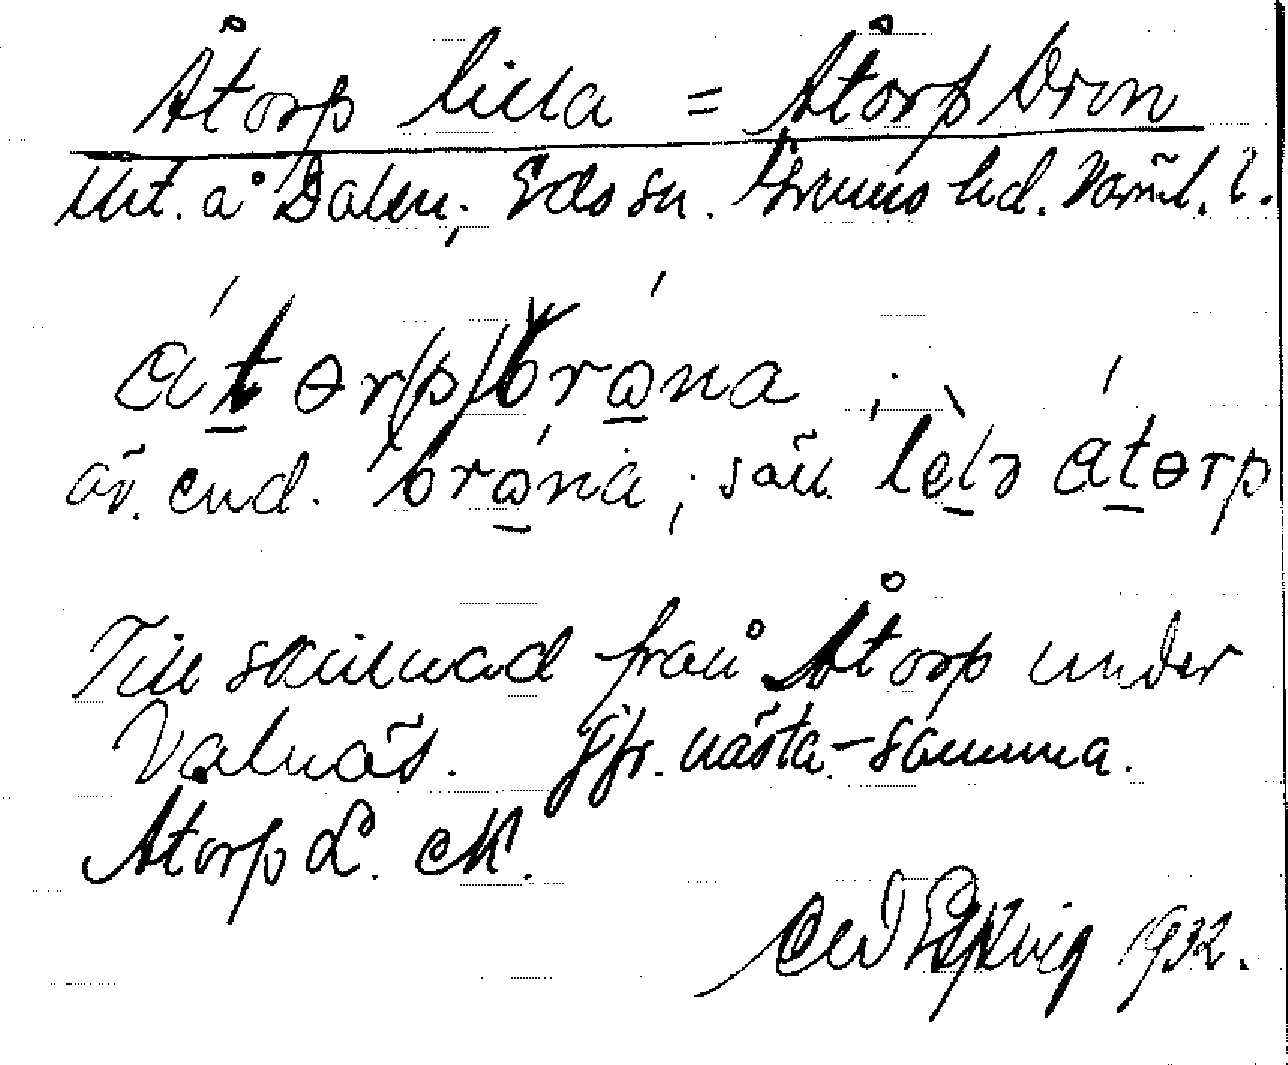 Åtorp lilla = Åtorp Oron
lht. å Dalen; Eds sn. Grums hd. Värml. l.
átɵr/p/brǫna ;
äv. end. brǫna; säll. lèlɔ átɵrp
Till skillnad från Åtorp under
Valnäs. Jfr. nästa. – samma.
Åtorp L. M.
1932.